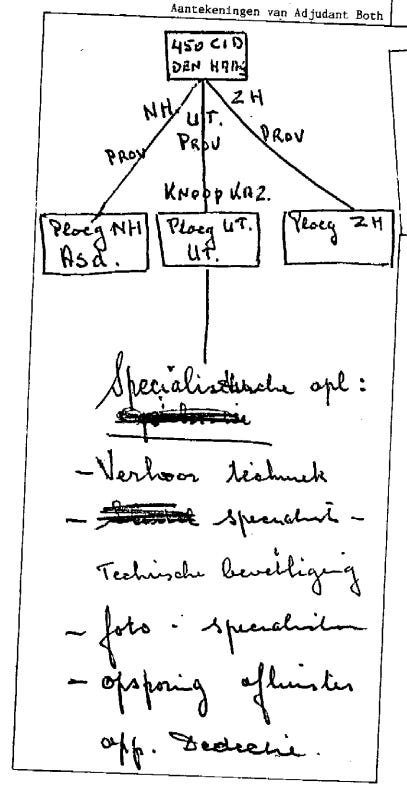 Aantekeningen van Adjudant Both
450 CID
DEN HAAG
NH. UT. ZH
PROV PROV PROV
KNOOP KAZ.
Ploeg NH Ploeg UT. Ploeg ZH
Asd. UT.
Specialistische opl:
- Verhoor techniek
- specialist -
Technische beveiliging
- foto - specialisten
- opsporing afluister
app. Dedectie.